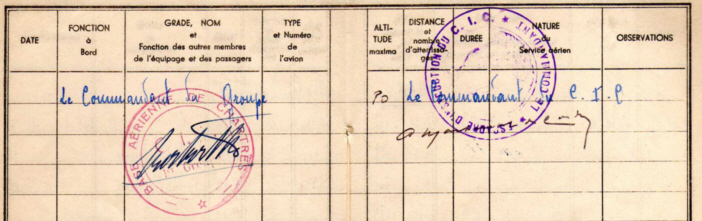 DATE
FONCTION
à
Bord
GRADE, NOM
et
Fonction des autres membres
de l'équipage et des passagers
TYPE
et Numéro
de
l'avion
ALTI-
TUDE
maxima
DISTANCE
et
nombre
d'atterrissages
DURÉE
NATURE
du
Service aérien
OBSERVATIONS
Le Commandant du Groupe
PO Le Commandant du C.I.C
BASE AÉRIENNE DE CHARTRES
D'INSTRUCTION DU C.I.C. * LE COMMANDANT *